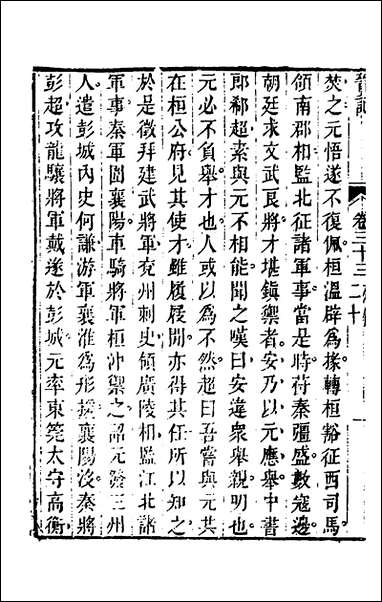 卷三十三 二十
焚之元悟遂不復佩桓溫辟爲掾轉桓豁征西司馬
領南郡相監北征諸軍事當是時苻秦彊盛數寇邊
朝廷求文武良將才堪鎮禦者安乃以元應舉中書
郎郗超素與元不相能聞之嘆曰安違衆舉親明也
元必不負舉才也人或以爲不然超曰吾嘗與元共
在桓公府見其使才雖履屐閒亦得其任所以知之
於是徵拜建武將軍兗州刺史領廣陵相監江北諸
軍事秦軍圍襄陽車騎將軍桓沖禦之詔元發三州
人遣彭城內史何謙游軍襄淮爲形援襄陽沒秦將
彭超攻龍驤將軍戴遂於彭城元率東莞太守高衡